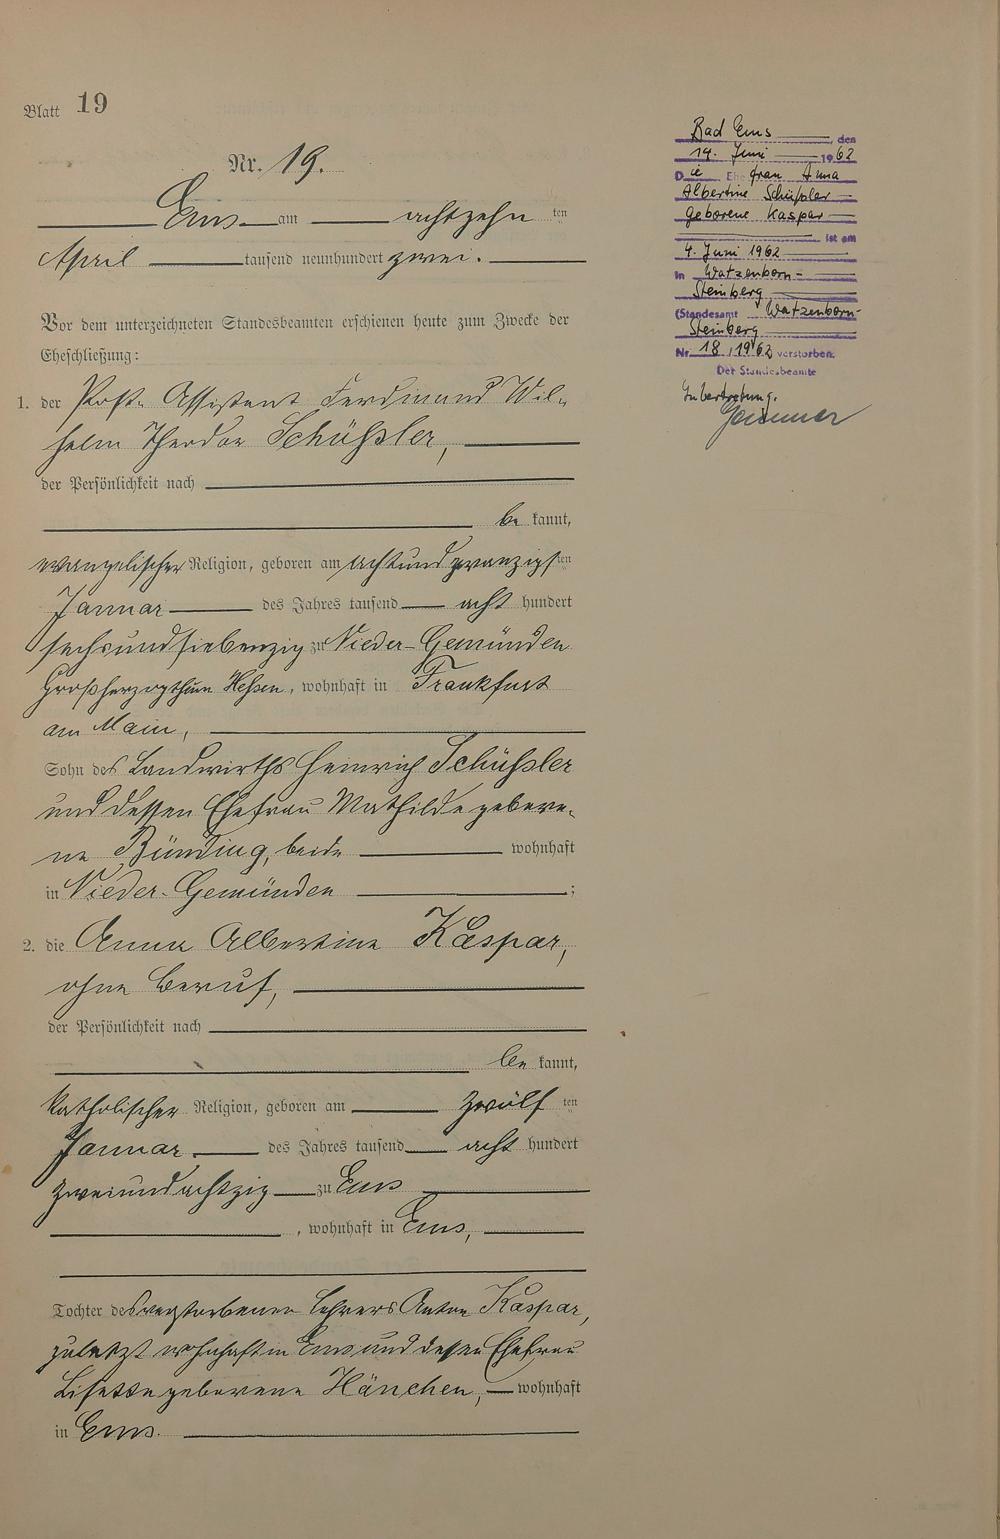 Blatt 19
Nr. 19.
Ems am achtzehn ten
April tausend neunhundert zwei.
Vor dem unterzeichneten Standesbeamten erschienen heute zum Zwecke der
Eheschließung:
1. der Post-Assistent Ferdinand Wil-
helm Theodor Schüßler,
der Persönlichkeit nach
be kannt,
evangelischer Religion, geboren am achtundzwanzigsten
Januar des Jahres tausend acht hundert
sechsundsiebenzig zu Nieder-Gemünden
Großherzogthum Hessen, wohnhaft in Frankfurt
am Main,
Sohn des Landwirths Heinrich Schüßler
und dessen Ehefrau Mathilde gebore-
ne Bünding, beide wohnhaft
in Nieder-Gemünden ;
2. die Anna Albertine Kaspar,
ohne Beruf,
der Persönlichkeit nach
be kannt,
katholischer Religion, geboren am zwölf ten
Januar des Jahres tausend acht hundert
zweiundachtzig zu Ems
, wohnhaft in Ems,
Tochter des verstorbenen Lehrers Anton Kaspar,
zuletzt wohnhaft in Ems und dessen Ehefrau
Lisette geborene Hänchen, wohnhaft
in Ems.
Bad Ems, den
14. Juni 1962
Die Ehefrau Anna
Albertine Schüßler
geborene Kaspar
ist am
4. Juni 1962
in Watzenborn-
Steinberg
(Standesamt Watzenborn-
Steinberg
Nr. 18/1962 verstorben.
Der Standesbeamte
In Vertretung.